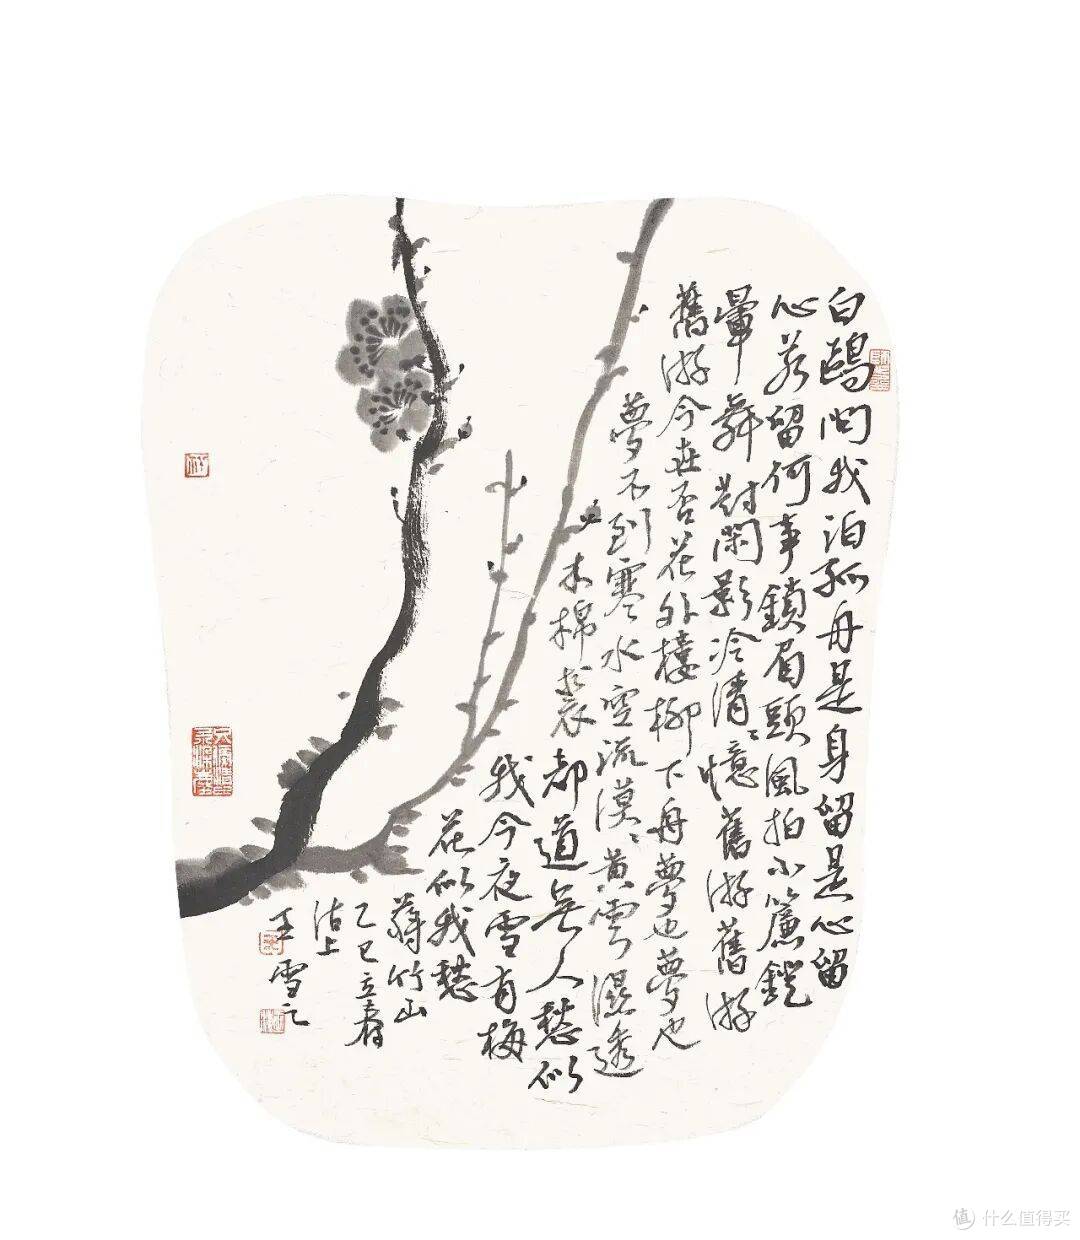 白鷗问我泊孤舟是身留是心留
心若留何事鎖眉頭風拍小簾鐙
暈舞對閑影冷清〻憶舊游舊游
舊游今在否花外樓柳下舟夢也夢也
夢不到寒水空流漠〻黄雲濕透
木棉裘
都道無人愁似
我今夜雪有梅
花似我愁
蔣竹山
乙巳立春
沽上
王雪之
值 什么值得买